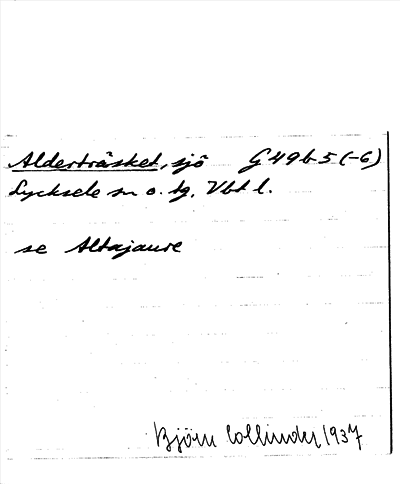 Alderträsket, sjö G49b5(-6)
Lycksele sn o. tg. Vbt l.
se Altajaure
Björn Collinder 1937